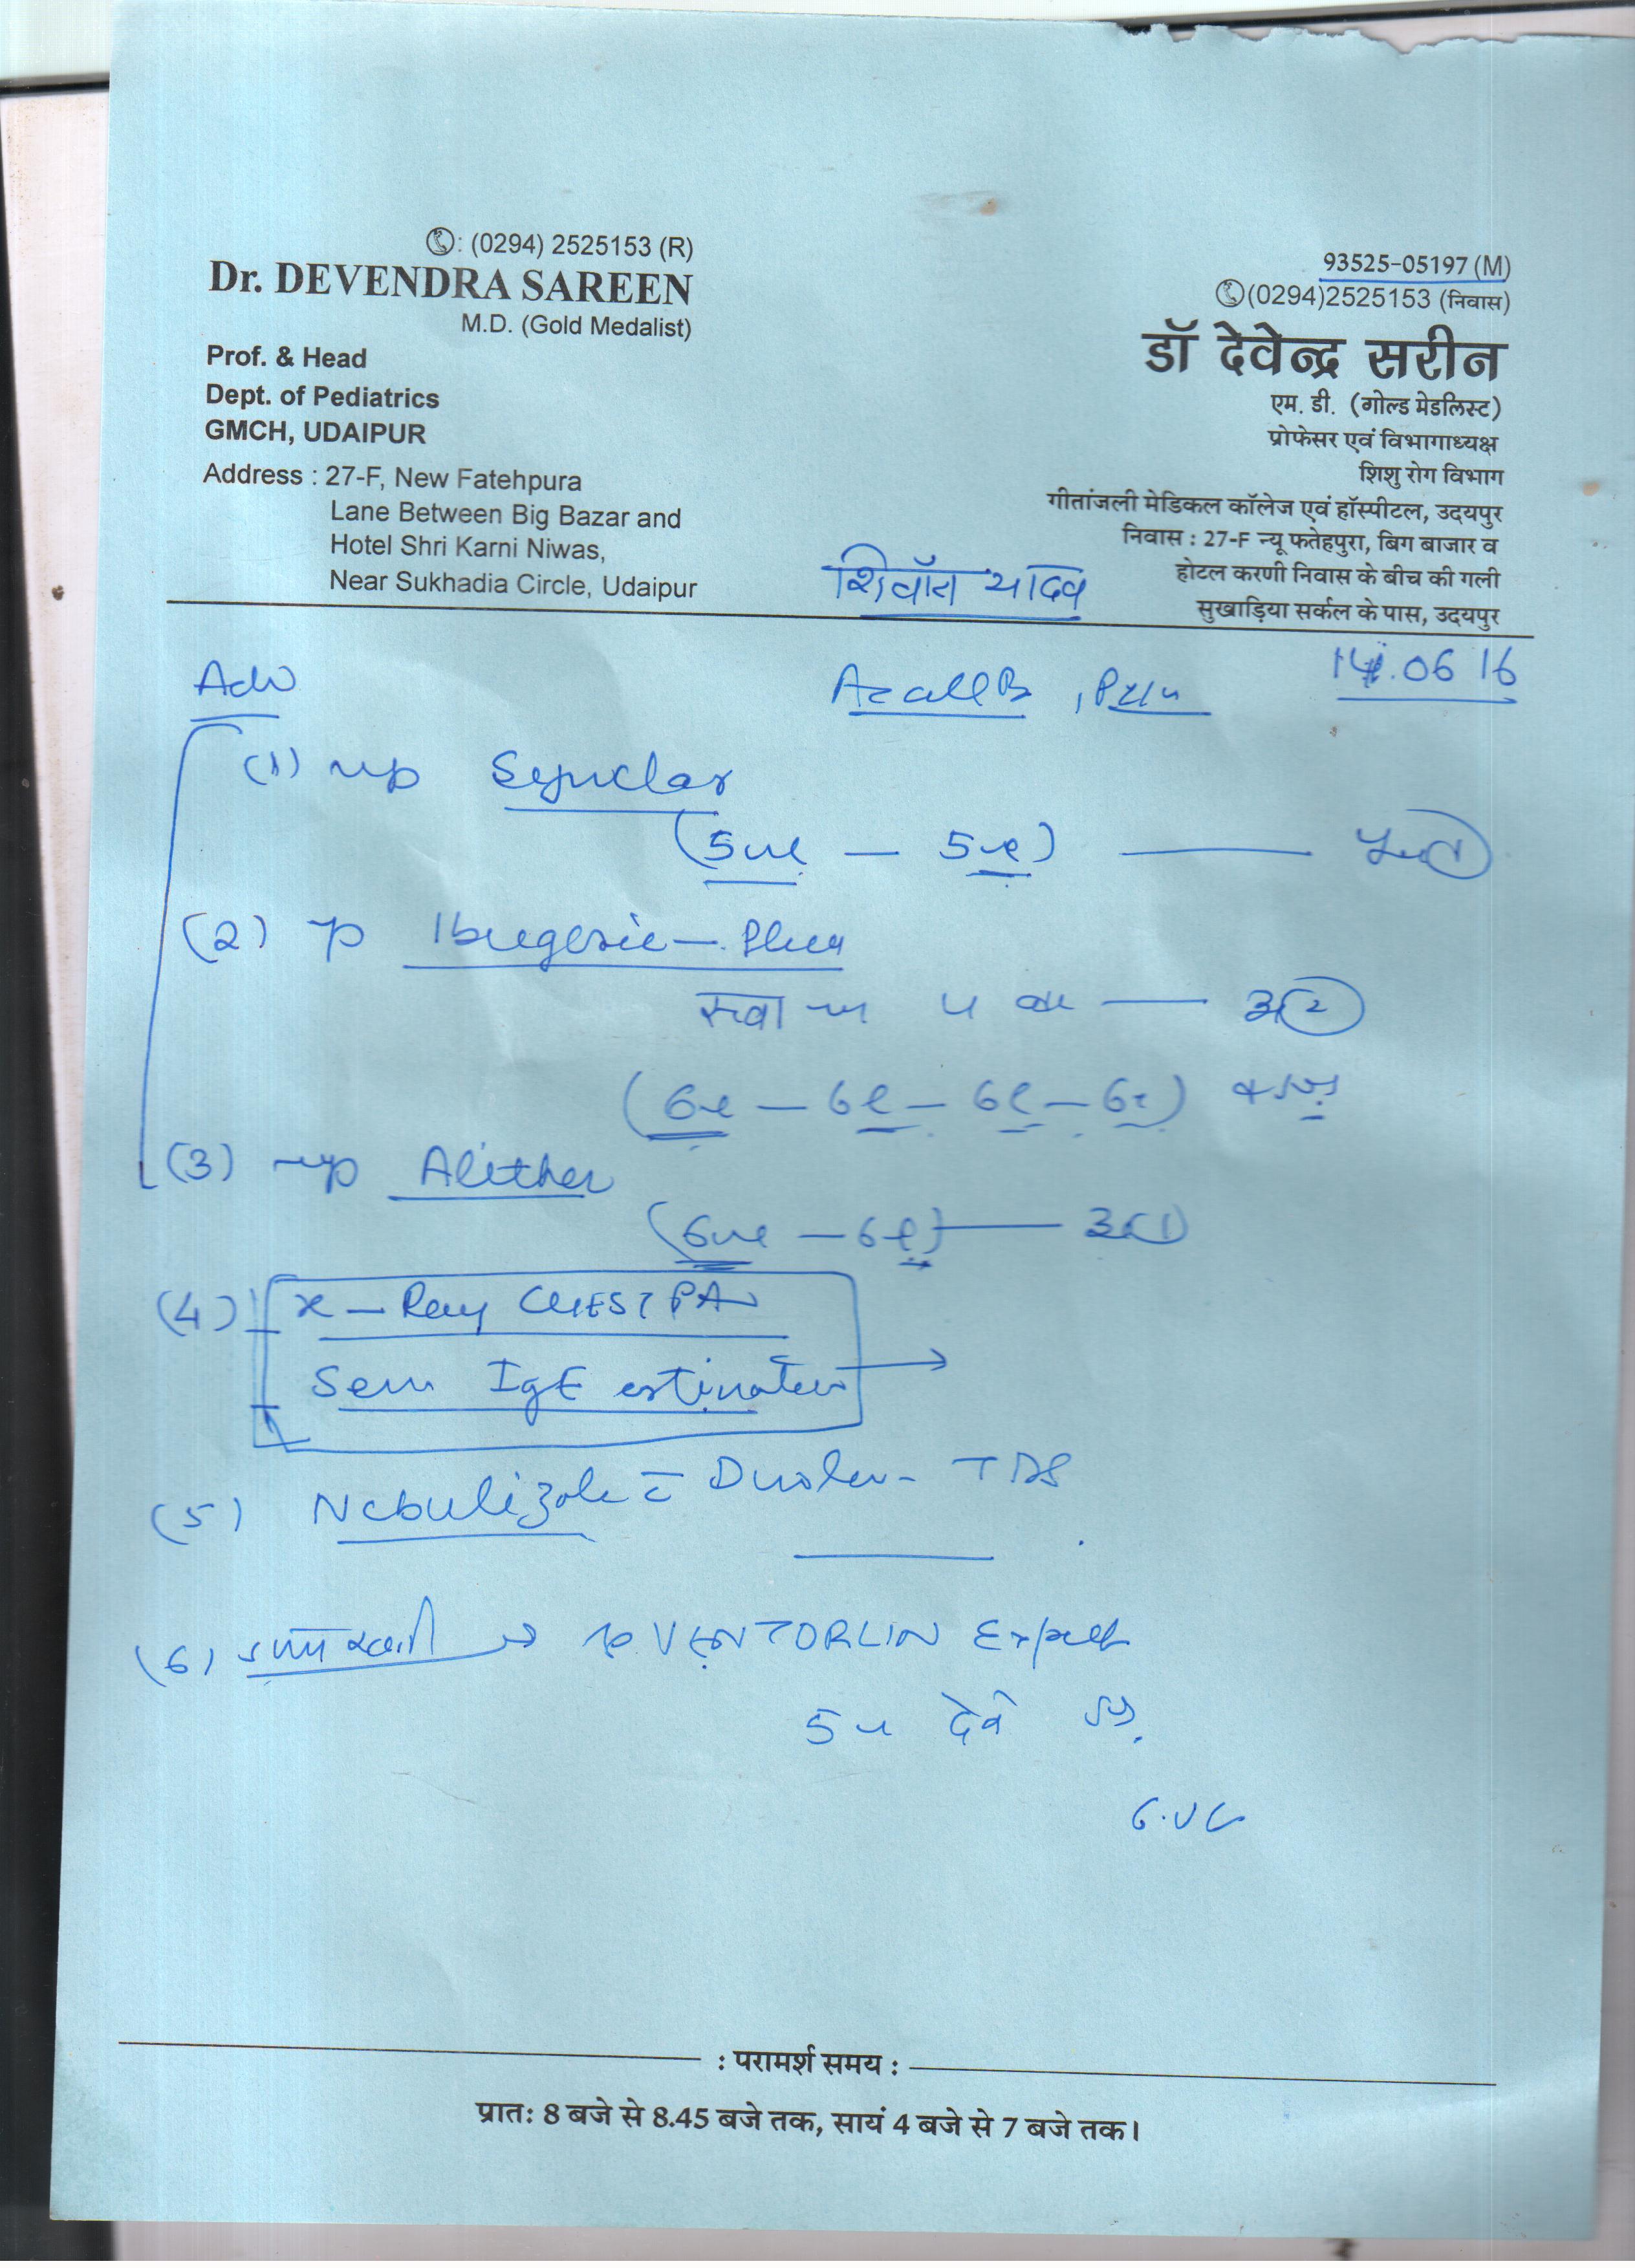 ✆: (0294) 2525153 (R)
Dr. DEVENDRA SAREEN
M.D. (Gold Medalist)
Prof. & Head
Dept. of Pediatrics
GMCH, UDAIPUR
Address : 27-F, New Fatehpura
Lane Between Big Bazar and
Hotel Shri Karni Niwas,
Near Sukhadia Circle, Udaipur
93525-05197 (M)
✆(0294)2525153 (निवास)
डॉ देवेन्द्र सरीन
एम. डी. (गोल्ड मेडलिस्ट)
प्रोफेसर एवं विभागाध्यक्ष
शिशु रोग विभाग
गीतांजली मेडिकल कॉलेज एवं हॉस्पीटल, उदयपुर
निवास : 27-F न्यू फतेहपुरा, बिग बाजार व
होटल करणी निवास के बीच की गली
सुखाड़िया सर्कल के पास, उदयपुर
यादव
14.06 16
Adv
(1)
(5ml — 5ml)
(2) Ibugesic — Plus
(6ml — 6ml — 6ml — 6ml)
(3)
(6ml — 6ml)
(4) X-Ray CHEST PA
Serum IgE estimation
(5) Nebulize TDS
(6) VENTORLIN Expect
5ml देवे
: परामर्श समय :
प्रात: 8 बजे से 8.45 बजे तक, सायं 4 बजे से 7 बजे तक।